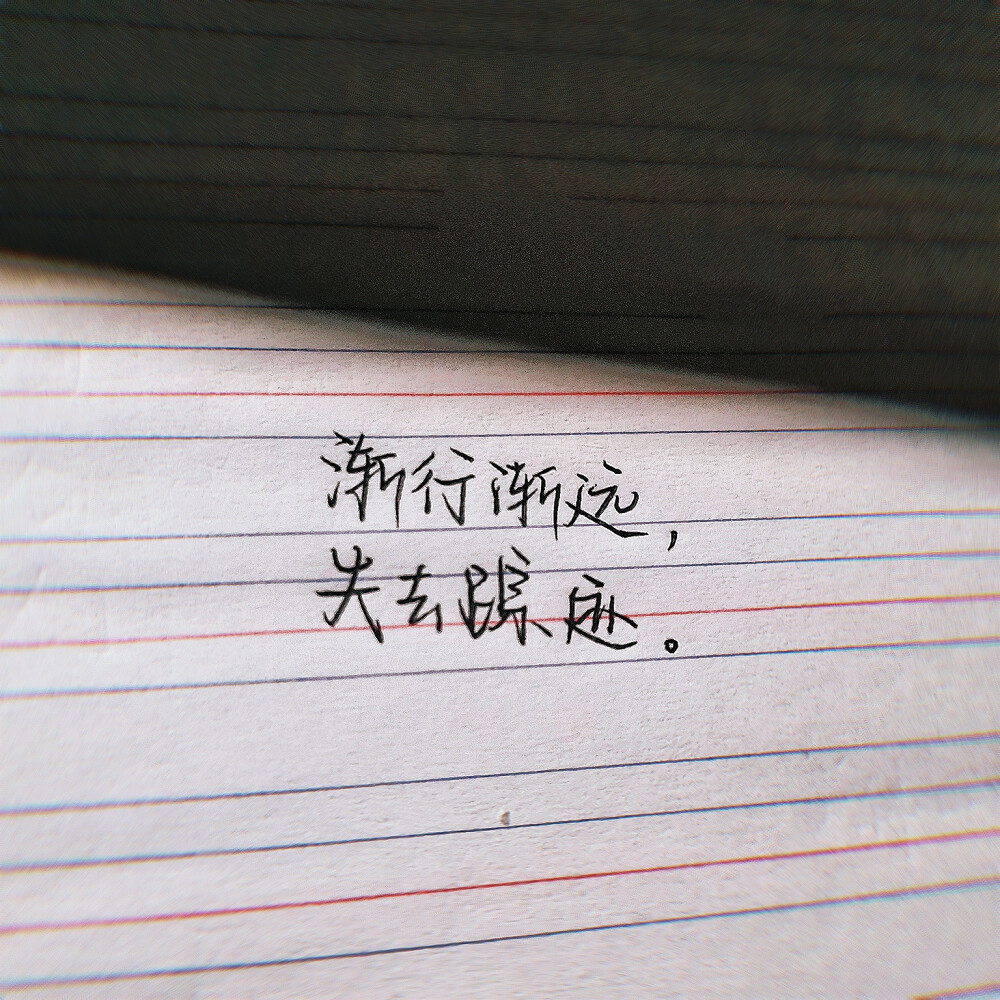 渐行渐远，
失去踪迹。